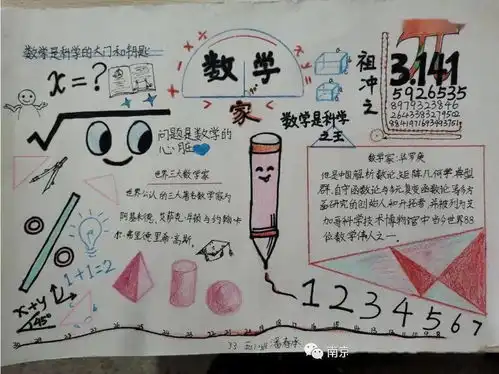 数学是科学的大门和钥匙
x=?
数学
家
祖冲之
π
3.141
5926535
8979323846
问题是数学的
心脏
数学是科学
之王
世界三大数学家
世界公认的三大著名数学家为
阿基米德、艾萨克·牛顿与约翰·卡
尔·弗里德里希·高斯。
数学家:华罗庚
他是中国解析数论,矩阵几何学,典型
群,自守函数论与多元复变函数论等多方
面研究的创始人和开拓者,并被列为芝
加哥科学技术博物馆中当今世界88
位数学伟人之一。
1+1=2
x+y
45°
1 2 3 4 5 6 7
南京